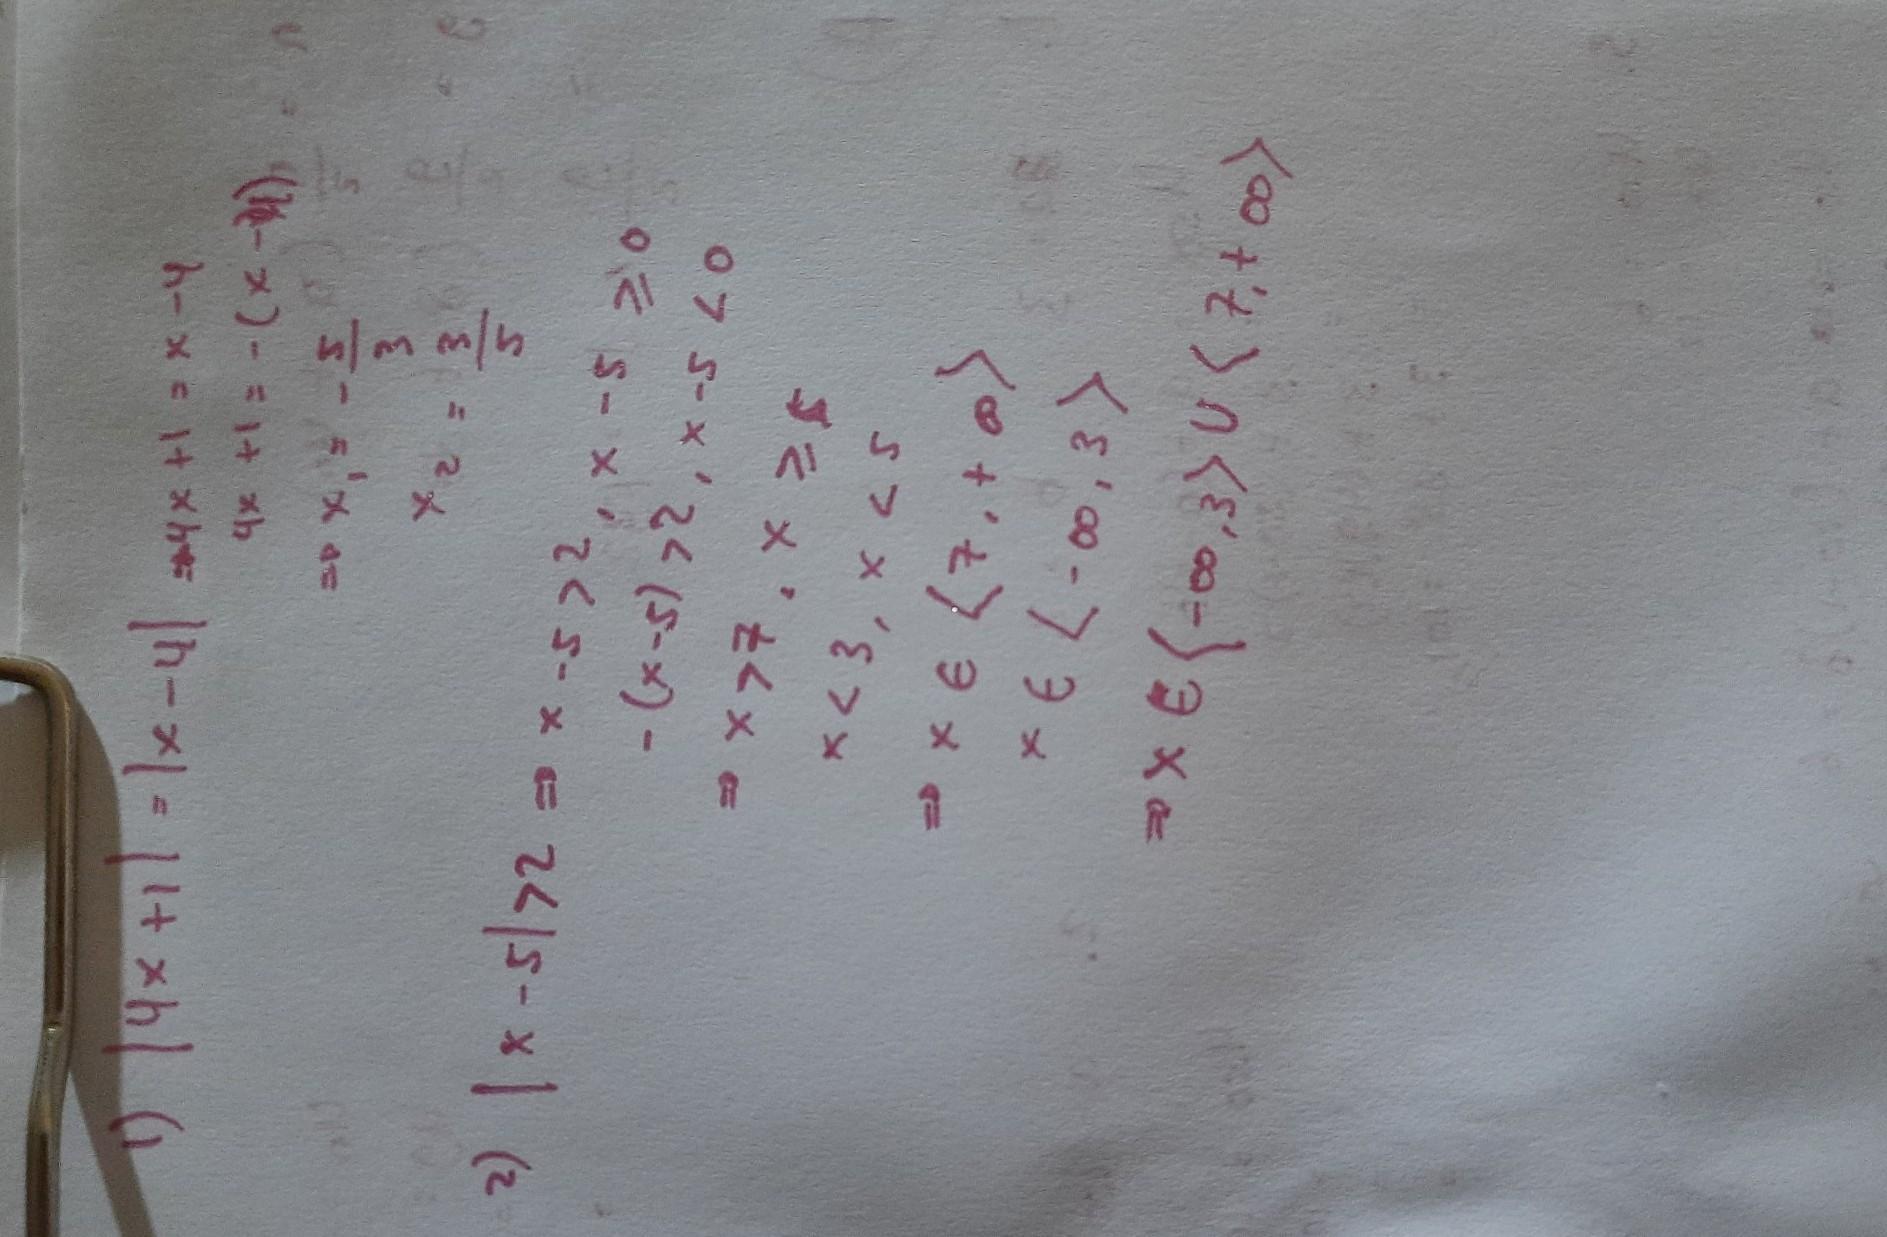 1) |4x+1| = |x-4| ⇒ 4x+1 = x-4
4x+1 = -(x-4)
⇒ x₁ = -5/3
x₂ = 3/5
2) |x-5|>2 ⇒ x-5>2, x-5 ≥ 0
-(x-5)>2, x-5 < 0
⇒ x>7, x ≥ 5
x<3, x<5
⇒ x ∈ ⟨7,+∞⟩
x ∈ ⟨-∞,3⟩
⇒ x ∈ ⟨-∞,3⟩ ∪ ⟨7,+∞⟩